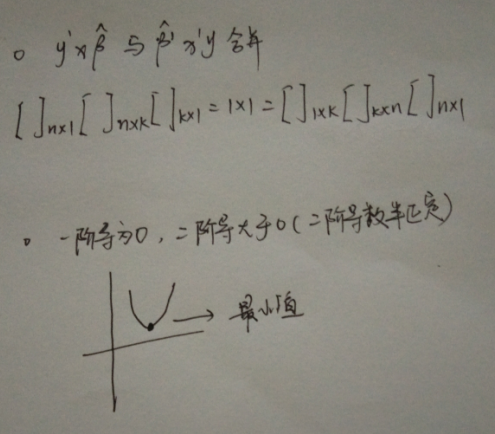 y'xβ̂ 与 β̂'x'y 合并
[ ]n×1 [ ]n×k [ ]k×1 = 1×1 = [ ]1×k [ ]k×n [ ]n×1
一阶导为0，二阶导大于0（二阶导数半正定）
→ 最小值